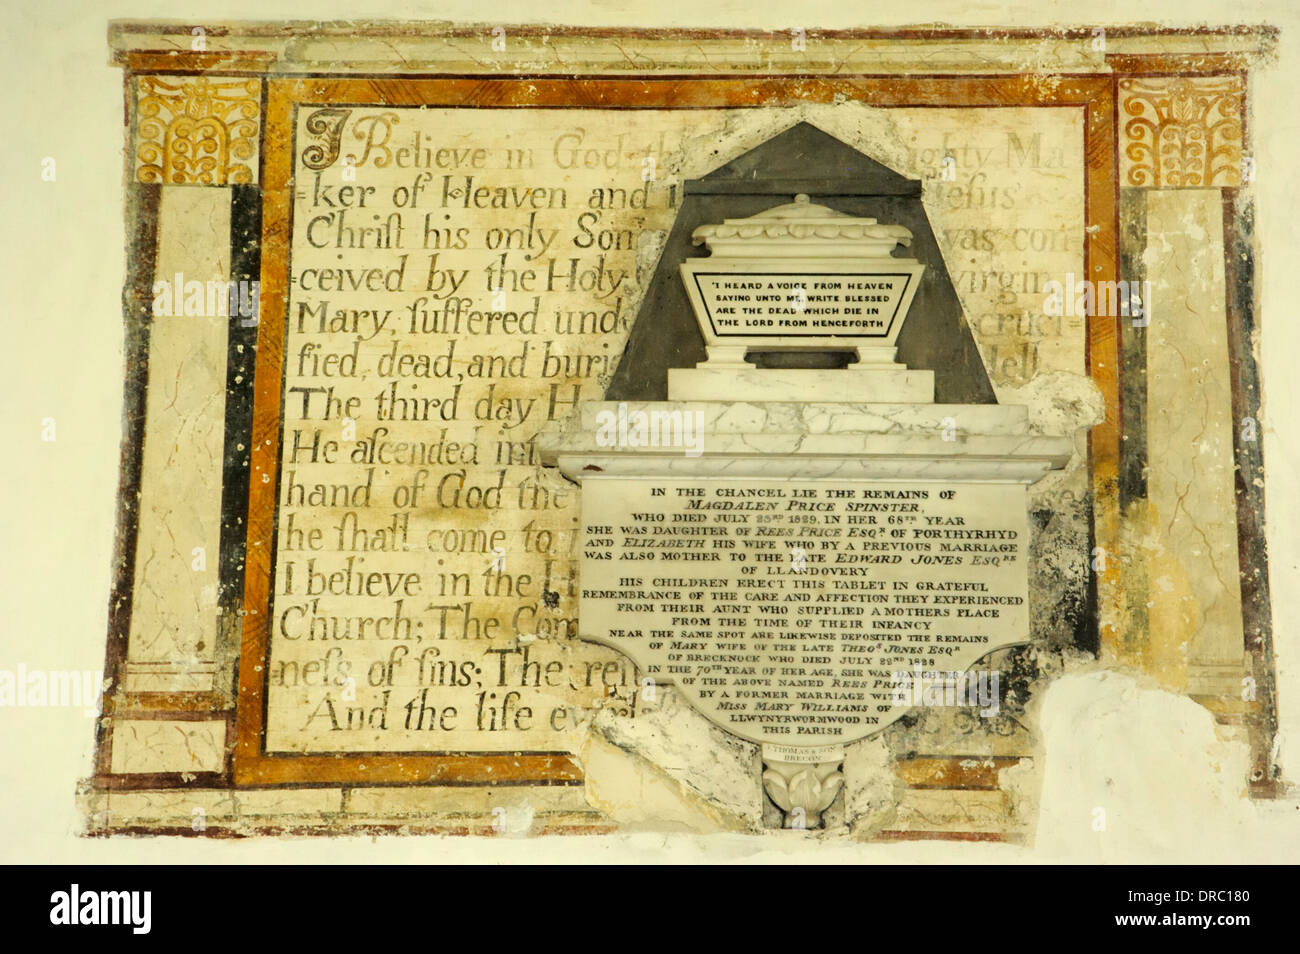 I Believe in God th ighty Ma
=ker of Heaven and Jeſus
Chriſt his only Son was con
=ceived by the Holy virgin
Mary, ſuffered und cruci=
fied, dead, and buri Hell
The third day H
He aſcended int
hand of God the
he ſhall come to
I believe in the H
Church; The Com
=neſs of ſins; The
And the life e
"I HEARD A VOICE FROM HEAVEN
SAYING UNTO ME, WRITE BLESSED
ARE THE DEAD WHICH DIE IN
THE LORD FROM HENCEFORTH
IN THE CHANCEL LIE THE REMAINS OF
MAGDALEN PRICE SPINSTER,
WHO DIED JULY 23RD 1829, IN HER 68TH YEAR
SHE WAS DAUGHTER OF REES PRICE ESQR OF PORTHYRHYD
AND ELIZABETH HIS WIFE WHO BY A PREVIOUS MARRIAGE
WAS ALSO MOTHER TO THE LATE EDWARD JONES ESQRE
OF LLANDOVERY
HIS CHILDREN ERECT THIS TABLET IN GRATEFUL
REMEMBRANCE OF THE CARE AND AFFECTION THEY EXPERIENCED
FROM THEIR AUNT WHO SUPPLIED A MOTHERS PLACE
FROM THE TIME OF THEIR INFANCY
NEAR THE SAME SPOT ARE LIKEWISE DEPOSITED THE REMAINS
OF MARY WIFE OF THE LATE THEOS JONES ESQR
OF BRECKNOCK WHO DIED JULY 22ND 1828
IN THE 70TH YEAR OF HER AGE, SHE WAS DAUGHTER
OF THE ABOVE NAMED REES PRICE
BY A FORMER MARRIAGE WITH
MISS MARY WILLIAMS OF
LLWYNYRWORMWOOD IN
THIS PARISH
THOMAS & SON
BRECON
a alamy stock photo
DRC180
www.alamy.com